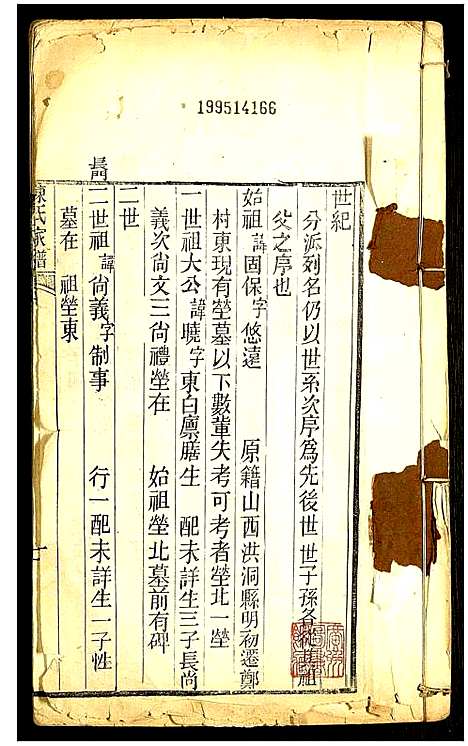 199514166
世紀
分派列名仍以世系次序為先後世世子孫各從其祖
父之序也
始祖諱固保字悠遠 原籍山西洪洞縣明初遷鄭
村東現有塋墓以下數輩失考可考者塋北一塋
一世祖大公諱曉字東白廩膳生 配未詳生三子長尚
義次尚文三尚禮塋在 始祖塋北墓前有碑
二世
長門二世祖諱尚義字制事 行一配未詳生一子性
墓在 祖塋東
陳氏家譜